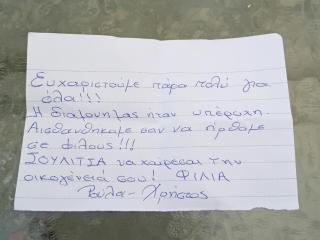 Ευχαριστούμε πάρα πολύ για
όλα!!!
Η διαμονή μας ήταν υπέροχη.
Αισθανθήκαμε σαν να ήρθαμε
σε φίλους!!!
ΣΟΥΛΙΤΙΑ να χαίρεσαι την
οικογένειά σου! ΦΙΛΙΑ
Ρούλα - Χρήστος